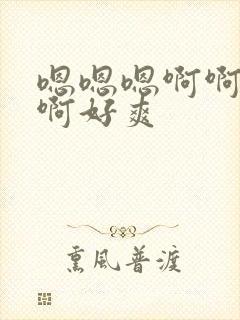 嗯嗯嗯啊啊
啊好爽
熏风普渡